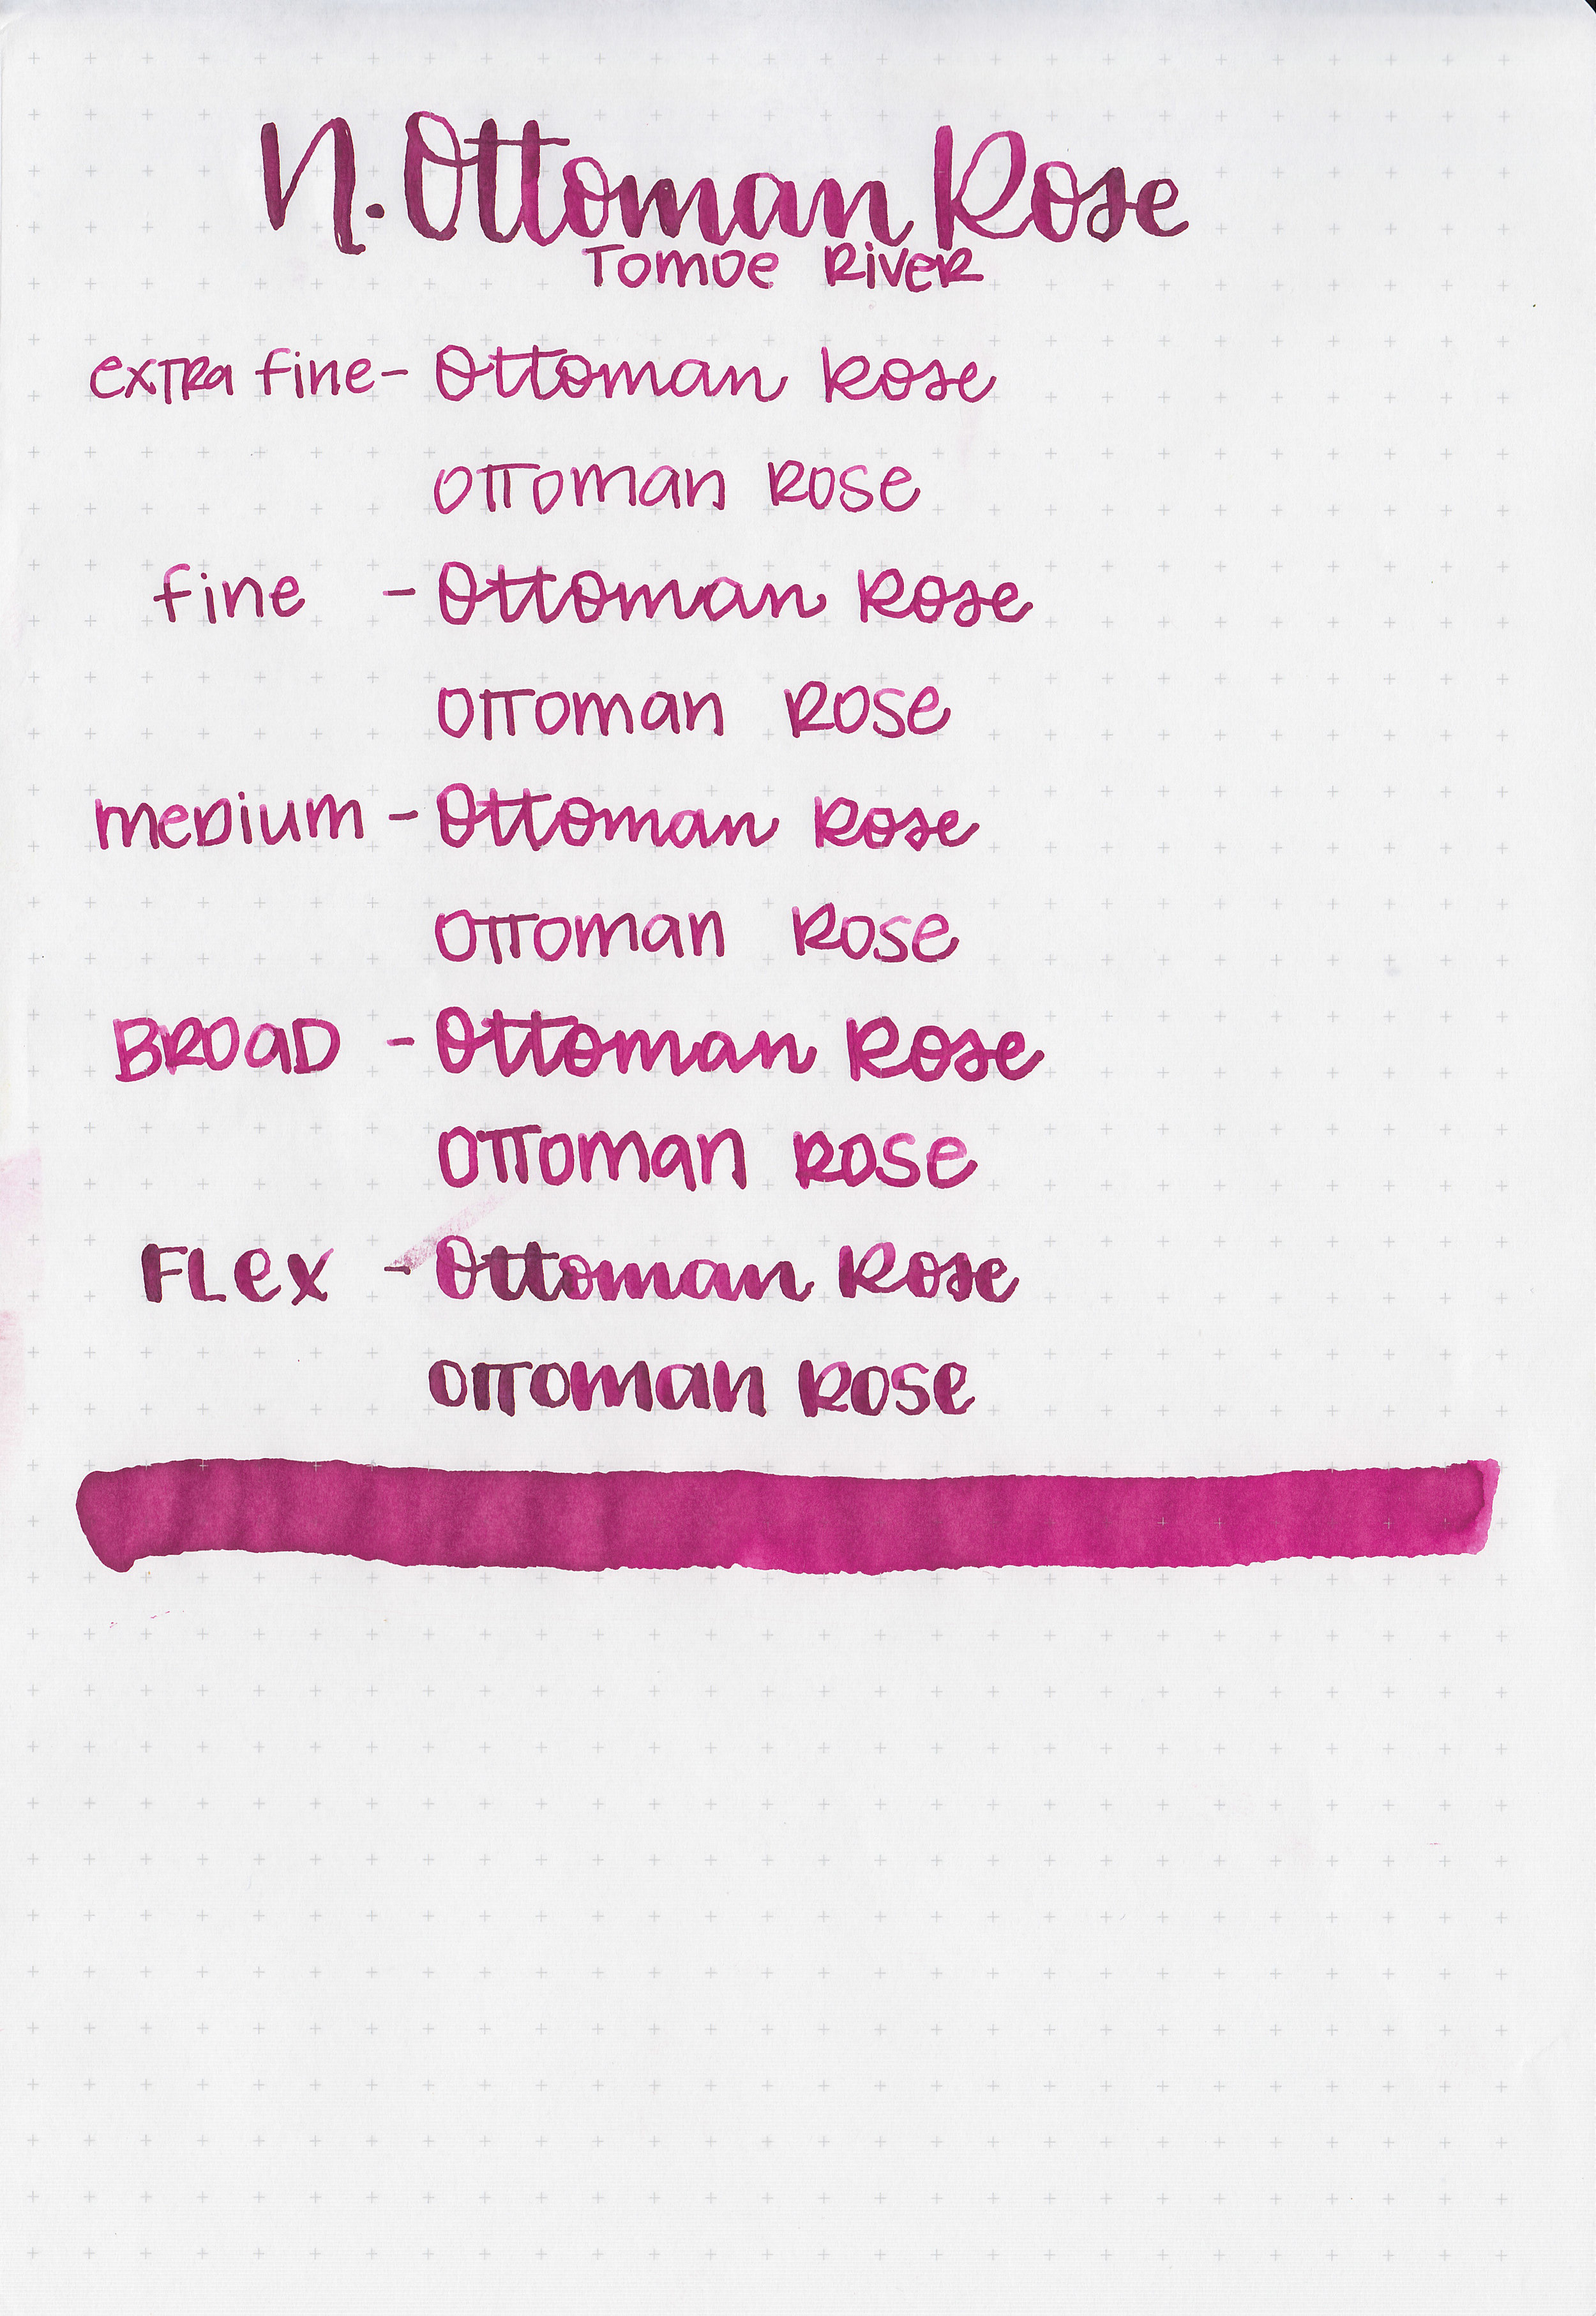 N. Ottoman Rose
Tomoe River
extra fine - Ottoman Rose
Ottoman Rose
fine - Ottoman Rose
Ottoman Rose
medium - Ottoman Rose
Ottoman Rose
Broad - Ottoman Rose
Ottoman Rose
Flex - Ottoman Rose
Ottoman Rose